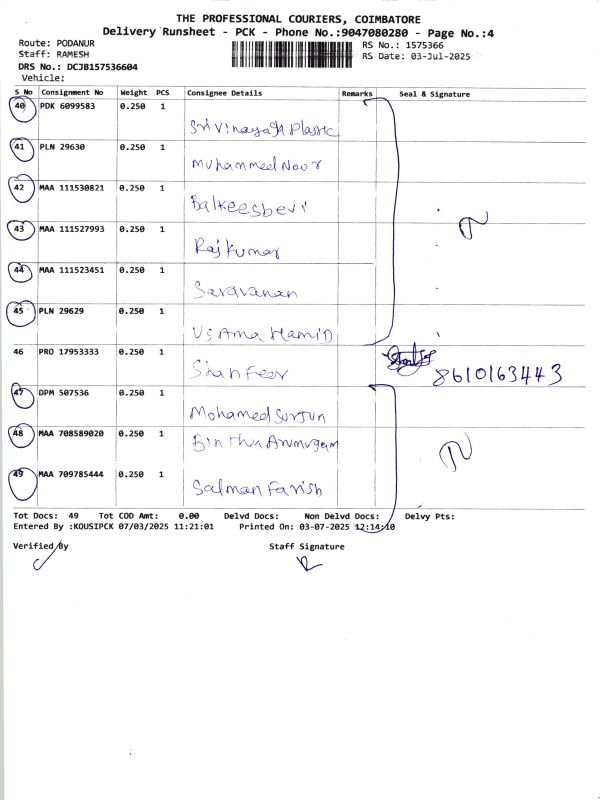 THE PROFESSIONAL COURIERS, COIMBATORE
Delivery Runsheet - PCK - Phone No.:9047080280 - Page No.:4
Route: PODANUR
Staff: RAMESH
DRS No.: DCJB157536604
Vehicle:
RS No.: 1575366
RS Date: 03-Jul-2025
S No Consignment No Weight PCS Consignee Details Remarks Seal & Signature
40 PDK 6099583 0.250 1
Sri Vinayaga Plastic
41 PLN 29630 0.250 1
Muhammed Noor
42 MAA 111530821 0.250 1
Balkeesbevi
43 MAA 111527993 0.250 1
Rajkumar
44 MAA 111523451 0.250 1
Saravanan
45 PLN 29629 0.250 1
Usama Hamid
46 PRO 17953333 0.250 1
Shanfeer 8610163443
47 DPM 507536 0.250 1
Mohamed
48 MAA 708589020 0.250 1
Arumugam
49 MAA 709785444 0.250 1
Salman Farish
Tot Docs: 49 Tot COD Amt: 0.00 Delvd Docs: Non Delvd Docs: Delvy Pts:
Entered By :KOUSIPCK 07/03/2025 11:21:01 Printed On: 03-07-2025 12:14:10
Verified By Staff Signature